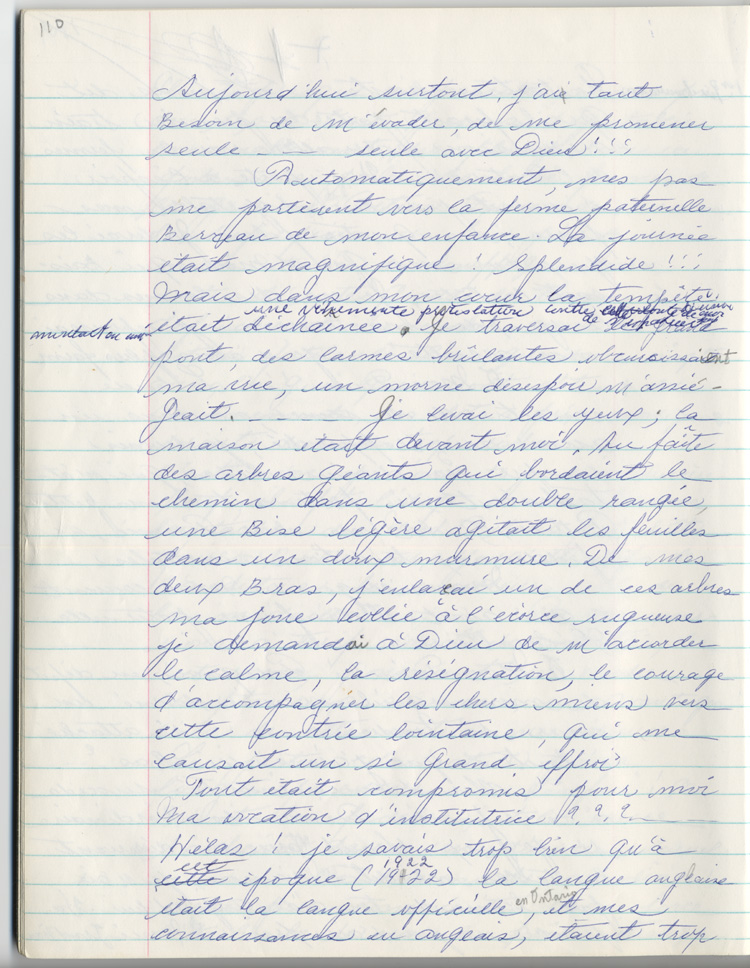 110
Aujourd'hui surtout, j'ai tant
Besoin de m'évader, de me promener
seule — — seule avec Dieu!!!
Automatiquement, mes pas
me portèrent vers la ferme paternelle
Berceau de mon enfance. La journée
était magnifique! Splendide!!!
Mais dans mon cœur la tempête
une véhémente protestation contre
montait en moi
était déchainée. Je traversai
pont, des larmes brûlantes obcurcissaient
ma vue, un morne désespoir m'assié-
geait. — — — — Je levai les yeux; la
maison était devant moi. Au faîte
des arbres géants qui bordaient le
chemin dans une double rangée,
une Bise légère agitait les feuilles
dans un doux murmure. De mes
deux Bras, j'enlaçai un de ces arbres
ma joue collée à l'écorce rugueuse
je demandai à Dieu de m'accorder
le calme, la résignation, le courage
d'accompagner les chers miens vers
cette contrée lointaine, qui me
causait un si Grand effroi
Tout était compromis pour moi
Ma vocation d'institutrice ?.?.?.
Hélas! je savais trop bien qu'à
cet 1922
cette époque (1922) la langue anglaise
en Ontario
était la langue officielle, et mes
connaissances en anglais, étaient trop